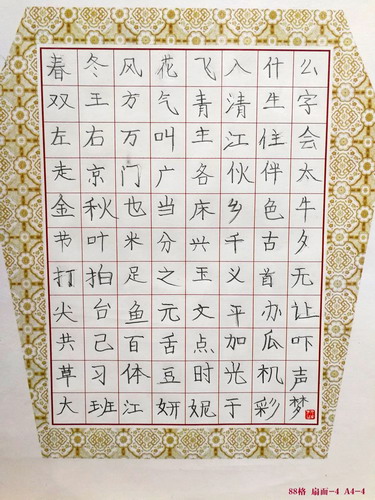 春冬风花飞入什么
双王方气青清生字
左右万叫主江住会
走京门广各伙伴太
金秋也当床乡色牛
节叶米分兴千古夕
打拍足之玉义首无
尖台鱼元文平办让
共己百舌点加瓜吓
草习体豆时光机声
大班江妍妮于彩梦
88格 扇面-4 A4-4